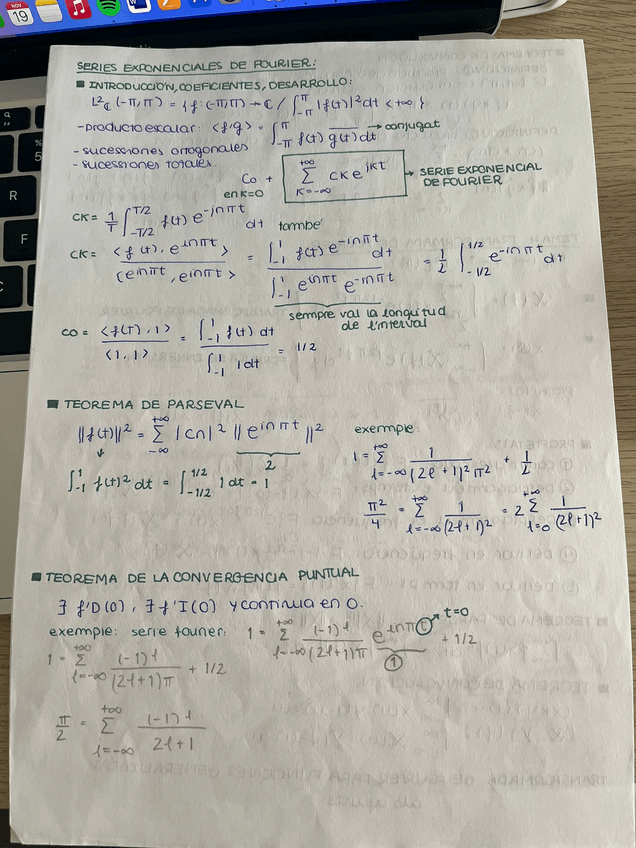 NOV
19
SERIES EXPONENCIALES DE FOURIER:
■ INTRODUCCIÓN, COEFICIENTES, DESARROLLO:
L²_ℂ (-π,π) = { f: (-π,π) → ℂ / ∫_{-π}^{π} |f(t)|² dt < +∞ }
- producto escalar: <f,g> = ∫_{-π}^{π} f(t) \overline{g(t)} dt → conjugat
- sucessiones ortogonales
- sucessiones totales.
C0 + Σ_{K=-∞}^{+∞} CK e^{jKt} → SERIE EXPONENCIAL DE FOURIER
en K=0
CK = 1/T ∫_{-T/2}^{T/2} f(t) e^{-jnπt} dt també
CK = <f(t), e^{inπt}> / <e^{inπt}, e^{inπt}> = ∫_{-1}^{1} f(t) e^{-inπt} dt / ∫_{-1}^{1} e^{inπt} e^{-inπt} = 1/2 ∫_{-1/2}^{1/2} e^{-inπt} dt
sempre val la longitud
de l'interval
C0 = <f(t), 1> / <1, 1> = ∫_{-1}^{1} f(t) dt / ∫_{-1}^{1} 1 dt = 1/2
■ TEOREMA DE PARSEVAL
||f(t)||² = Σ_{-∞}^{+∞} |cn|² ||e^{inπt}||²
2
∫_{-1}^{1} f(t)² dt = ∫_{-1/2}^{1/2} 1 dt = 1
exemple:
1 = Σ_{l=-∞}^{+∞} 1/((2l+1)² π²) + 1/2
π²/4 = Σ_{l=-∞}^{+∞} 1/(2l+1)² = 2 Σ_{l=0}^{+∞} 1/(2l+1)²
■ TEOREMA DE LA CONVERGENCIA PUNTUAL
∃ f'D(0), ∃ f'I(0) y continua en 0.
exemple: serie fourier: 1 = Σ_{l=-∞}^{+∞} (-1)^l/((2l+1)π) e^{inπt} + 1/2
t=0
1
1 = Σ_{l=-∞}^{+∞} (-1)^l/((2l+1)π) + 1/2
π/2 = Σ_{l=-∞}^{+∞} (-1)^l/(2l+1)